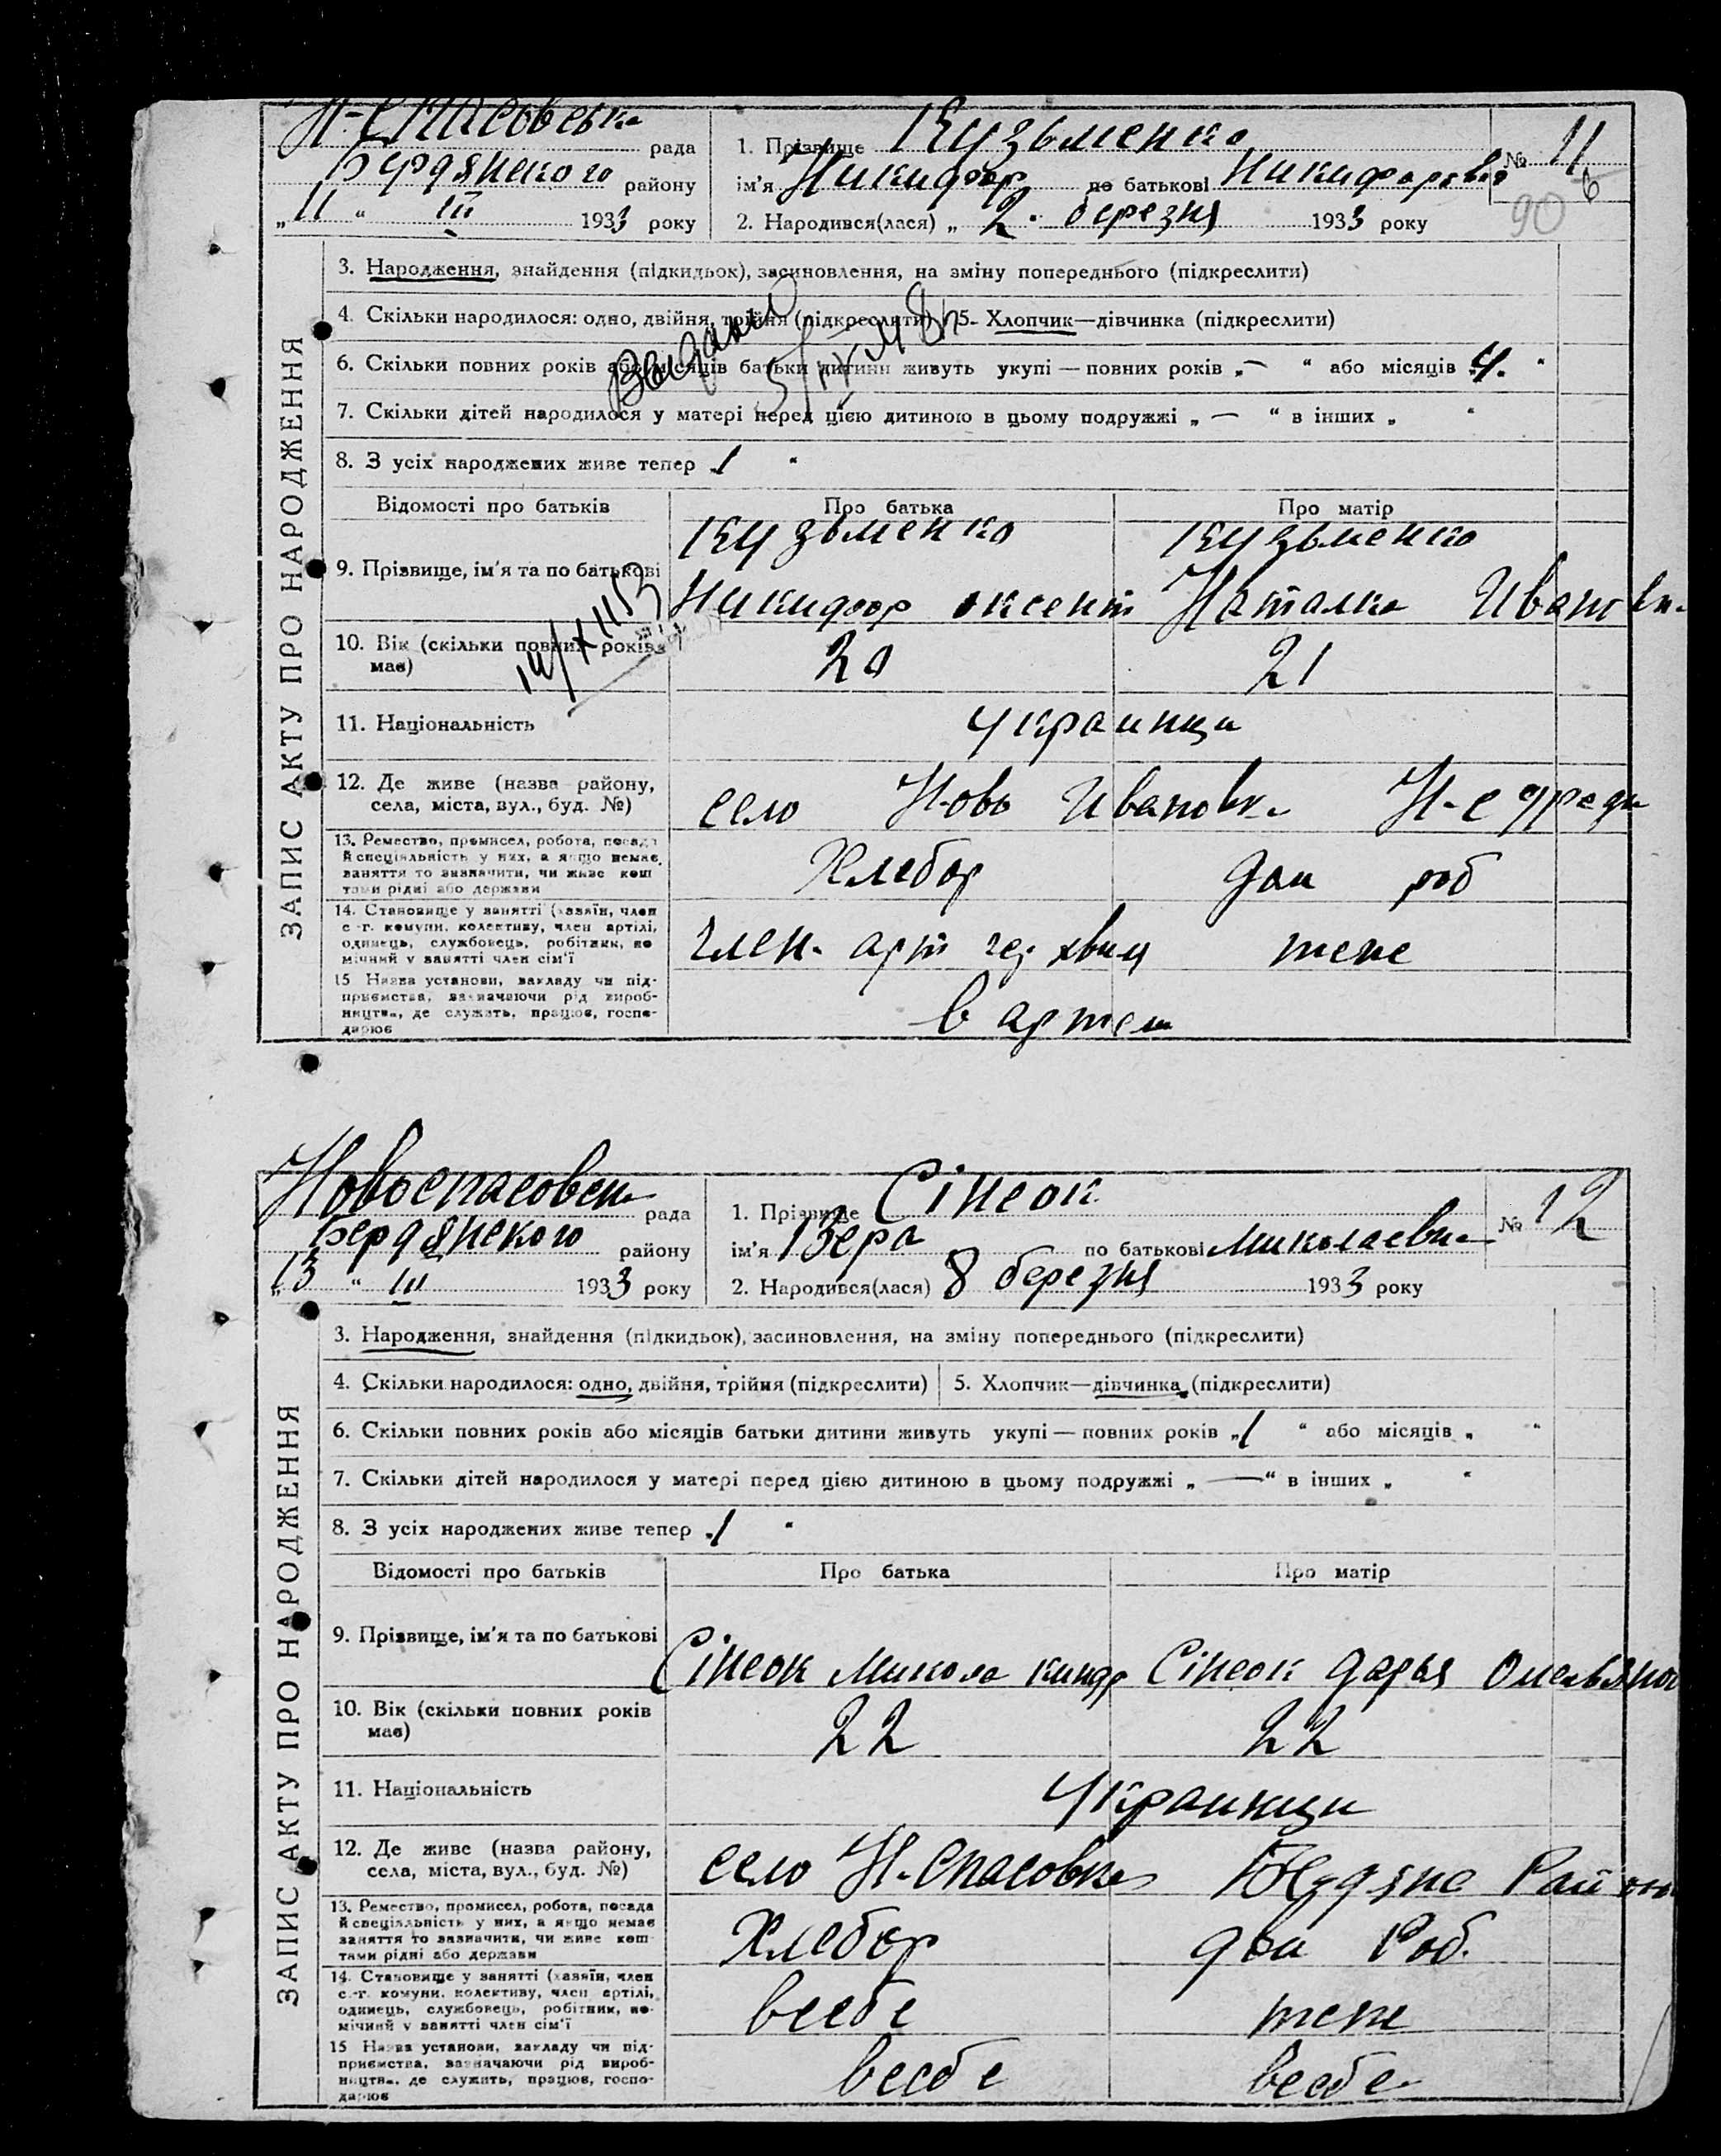 ЗАПИС АКТУ ПРО НАРОДЖЕННЯ
Н-Спасовська рада
Бердянского району
„11“ III 1933 року
1. Прізвище Кузьменко
ім'я Никифор по батькові Никифорович
2. Народився(лася) „2. березня 1933 року
№ 11
6
90
3. Народження, знайдення (підкидьок), засиновлення, на зміну попереднього (підкреслити)
4. Скільки народилося: одно, двійня, трійня (підкреслити) 5. Хлопчик—дівчинка (підкреслити)
6. Скільки повних років або місяців батьки дитини живуть укупі — повних років „—“ або місяців „4.“
7. Скільки дітей народилося у матері перед цією дитиною в цьому подружжі „—“ в інших „ “
8. З усіх народжених живе тепер „1“
Відомості про батьків Про батька Про матір
Кузьменко Кузьменко
9. Прізвище, ім'я та по батькові Никифор оксент Наталка Ивановн.
10. Вік (скільки повних років має) 20 21
11. Національність украинци
12. Де живе (назва району, села, міста, вул., буд. №) село Ново Ивановка
13. Ремество, промисел, робота, посада й спеціяльність у них, а якщо немає заняття то зазначити, чи живе коштами рідні або держави Хлебор дом роб
14. Становище у занятті (хазяїн, член с.-г. комуни, колективу, член артілі, одинець, службовець, робітник, помічний у занятті член сім'ї член. арт теж
15 Назва установи, закладу чи підприємства, зазначаючи рід виробництва, де служить, працює, господарює в артели
ЗАПИС АКТУ ПРО НАРОДЖЕННЯ
Новоспасовськ рада
Бердянского району
„13“ III 1933 року
1. Прізвище Сінеок
ім'я Вера по батькові Миколаевн
2. Народився(лася) 8 березня 1933 року
№ 12
3. Народження, знайдення (підкидьок), засиновлення, на зміну попереднього (підкреслити)
4. Скільки народилося: одно, двійня, трійня (підкреслити) 5. Хлопчик—дівчинка (підкреслити)
6. Скільки повних років або місяців батьки дитини живуть укупі — повних років „1“ або місяців „ “
7. Скільки дітей народилося у матері перед цією дитиною в цьому подружжі „—“ в інших „ “
8. З усіх народжених живе тепер „1“
Відомості про батьків Про батька Про матір
9. Прізвище, ім'я та по батькові Сінеок Микола киндр Сінеок дарья Омельяно
10. Вік (скільки повних років має) 22 22
11. Національність Украинци
12. Де живе (назва району, села, міста, вул., буд. №) село Н-Спасовка Бердянс Району
13. Ремество, промисел, робота, посада й спеціяльність у них, а якщо немає заняття то зазначити, чи живе коштами рідні або держави Хлебор дом Роб.
14. Становище у занятті (хазяїн, член с.-г. комуни, колективу, член артілі, одинець, службовець, робітник, помічний у занятті член сім'ї всебе теж
15 Назва установи, закладу чи підприємства, зазначаючи рід виробництва, де служить, працює, господарює всебе всебе